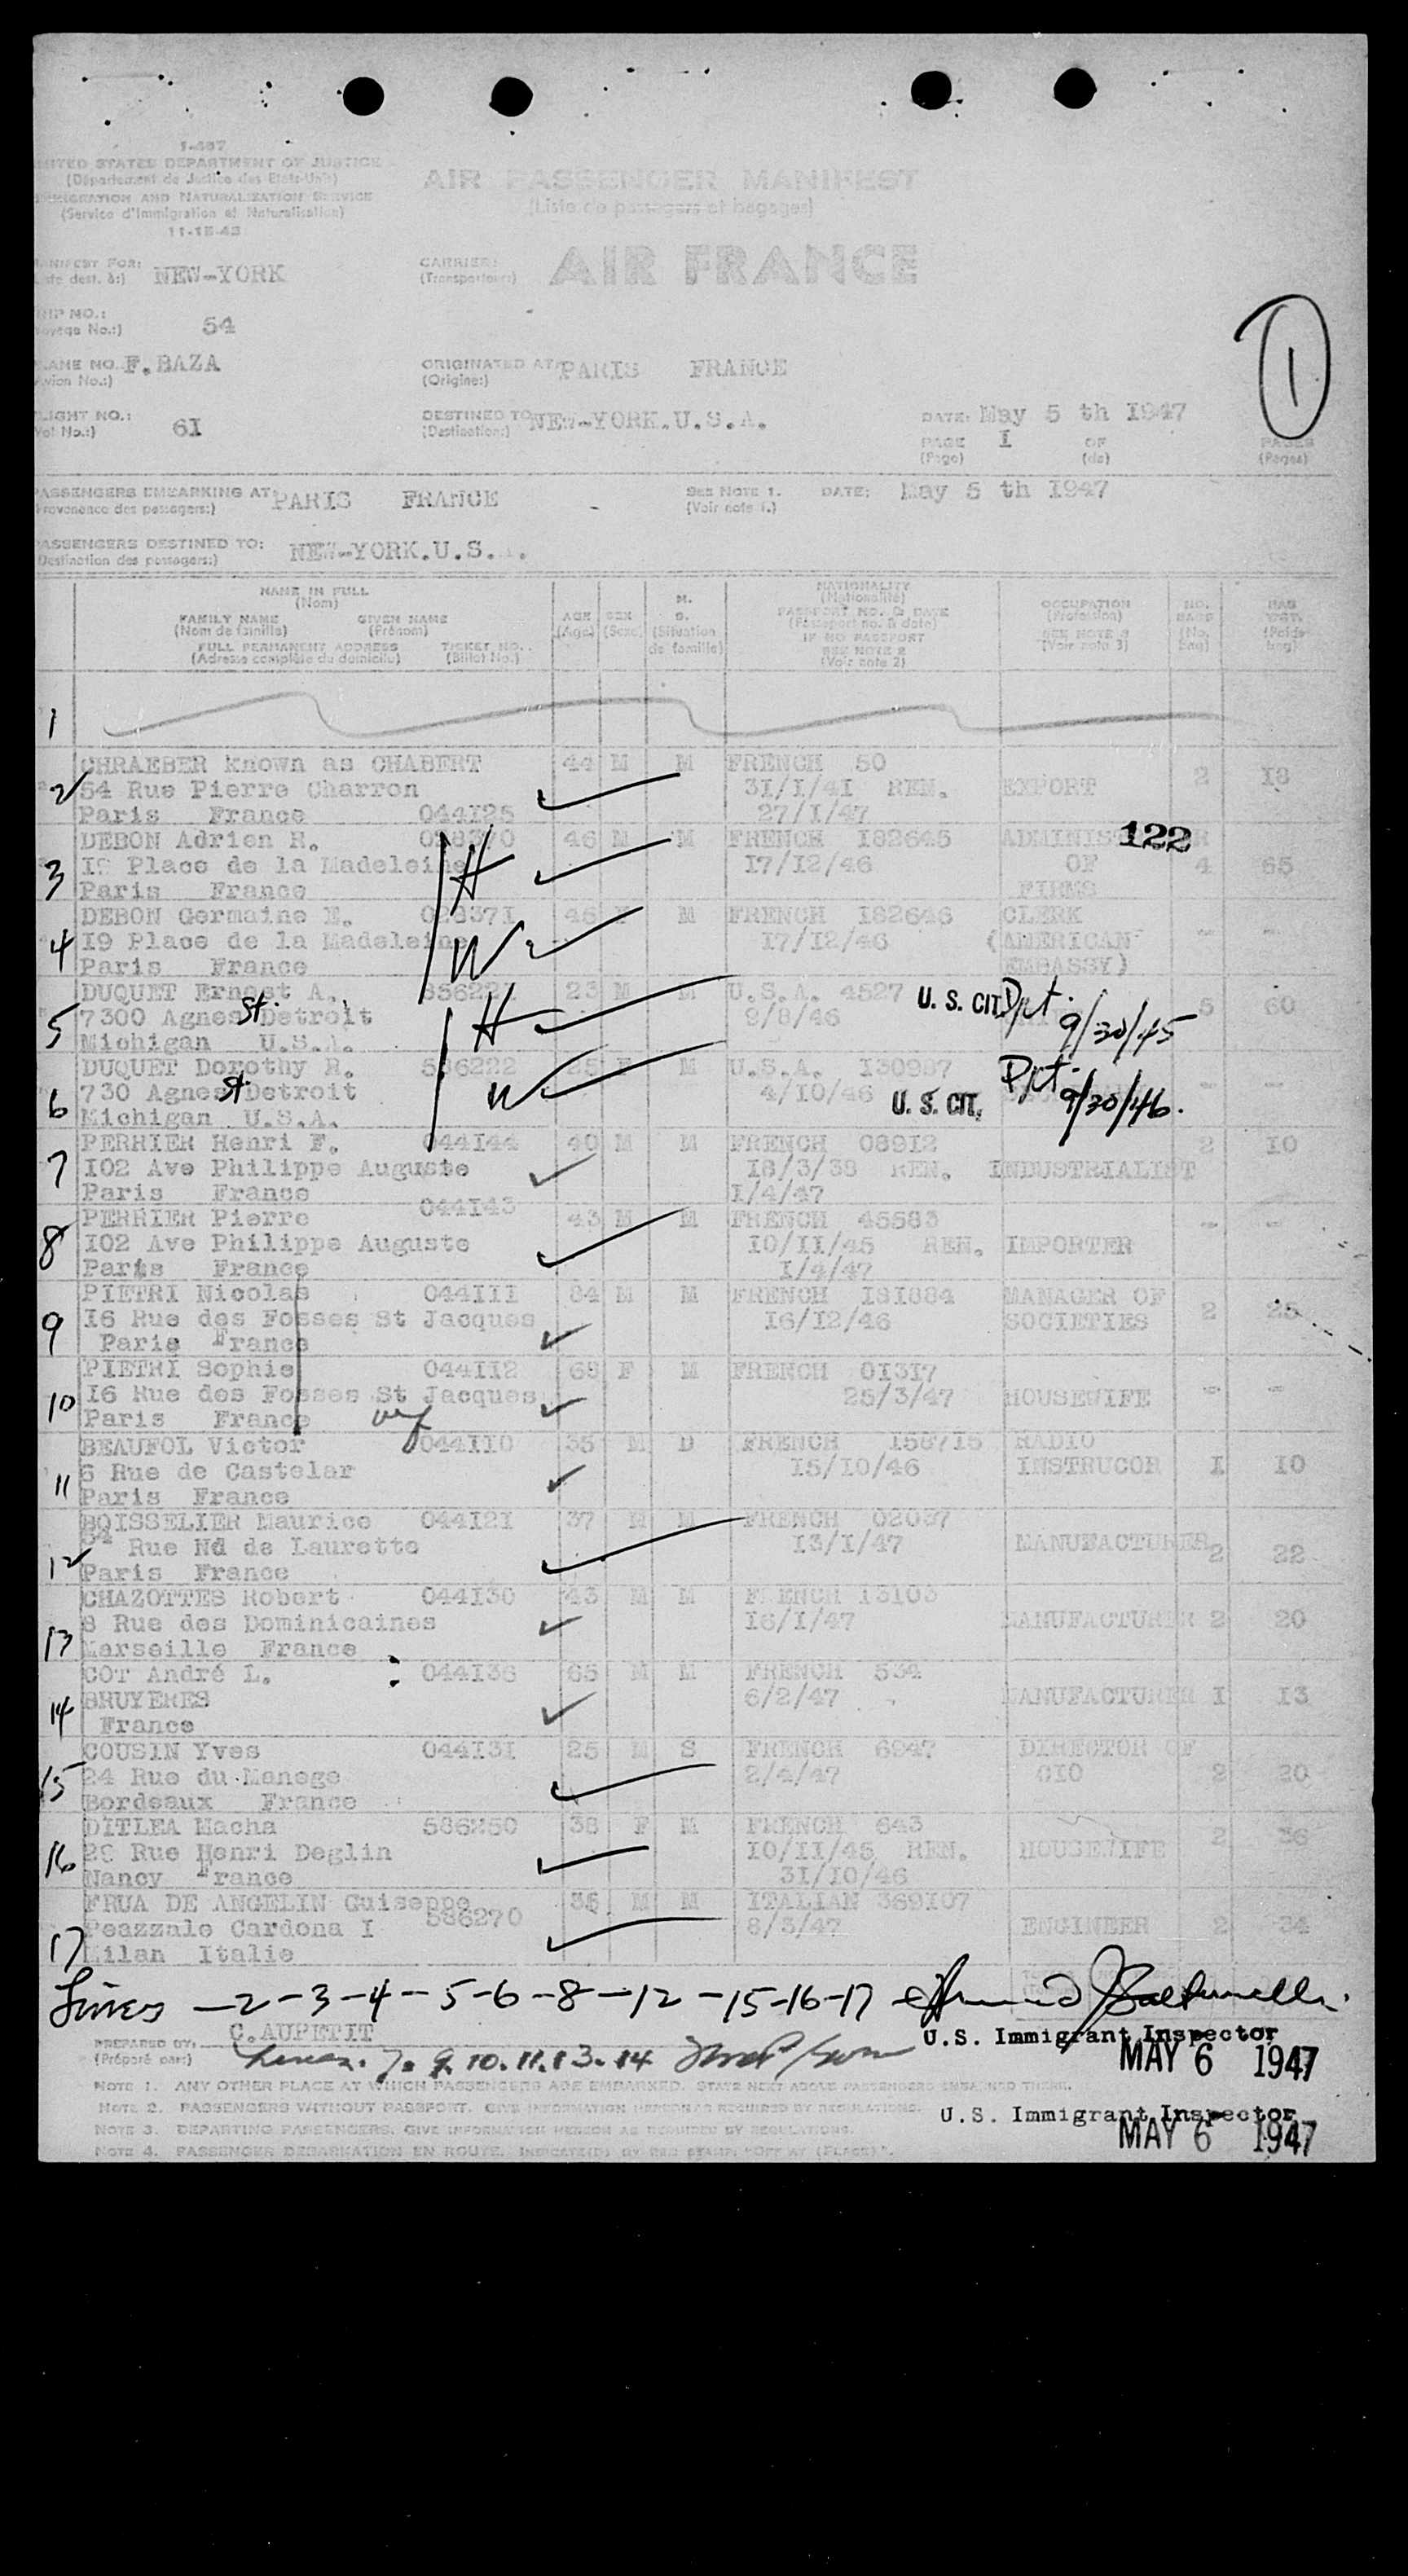 I-467
UNITED STATES DEPARTMENT OF JUSTICE
(Département de Justice des Etats-Unis)
IMMIGRATION AND NATURALIZATION SERVICE
(Service d'Immigration et Naturalisation)
11-15-43
AIR PASSENGER MANIFEST
(Liste de passagers et bagages)
MANIFEST FOR: NEW-YORK
dest. à:)
CARRIER: AIR FRANCE
(Transporteur:)
TRIP NO.: 54
(Voyage No.:)
1
PLANE NO. F.BAZA
(Avion No.:)
ORIGINATED AT: PARIS FRANCE
(Origine:)
FLIGHT NO.: 6I
(Vol No.:)
DESTINED TO NEW-YORK.U.S.A.
(Destination:)
DATE: May 5 th I947
PAGE I OF PAGES
(Page) (de) (Pages)
PASSENGERS EMBARKING AT: PARIS FRANCE
(Provenance des passagers:)
SEE NOTE 1. DATE: May 5 th I947
(Voir note 1.)
PASSENGERS DESTINED TO: NEW-YORK.U.S.
(Destination des passagers:)
NAME IN FULL
(Nom)
FAMILY NAME GIVEN NAME
(Nom de famille) (Prénom)
FULL PERMANENT ADDRESS TICKET NO.
(Adresse complète du domicile) (Billet No.)
AGE (Age)
SEX (Sexe)
M. S. (Situation de famille)
NATIONALITY
(Nationalité)
PASSPORT NO. & DATE
(Passeport no. & date)
IF NO PASSPORT
SEE NOTE 2
(Voir note 2)
OCCUPATION
(Profession)
SEE NOTE 3
(Voir note 3)
NO. BAGS (No. bag)
BAG WGT. (Poids bag)
1
2 CHRAEBER known as CHABERT 44 M M FRENCH 50
54 Rue Pierre Charron 31/1/41 REN. EXPORT 2 18
Paris France 044125 27/1/47
3 DEBON Adrien R. 028370 46 M M FRENCH 182645 122
19 Place de la Madeleine H 17/12/46 OF 4 65
Paris France FIRMS
4 DEBON Germaine E. 028371 46 F M FRENCH 182646 CLERK
19 Place de la Madeleine W 17/12/46 (AMERICAN - -
Paris France EMBASSY)
5 DUQUET Ernest A. 23 M M U.S.A. 4527 U. S. CIT. Dpt. 5 60
7300 Agnes St. Detroit H 9/30/45
Michigan U.S.A.
6 DUQUET Dorothy R. 586222 25 F M U.S.A. 130987 Dpt. - -
730 Agnes St. Detroit W 4/10/46 U. S. CIT. 9/30/46.
Michigan U.S.A.
7 PERRIER Henri F. 044144 40 M M FRENCH 08912 2 10
102 Ave Philippe Auguste 18/3/38 REN. INDUSTRIALIST
Paris France 1/4/47
8 PERRIER Pierre 044143 43 M M FRENCH 45583 - -
102 Ave Philippe Auguste 10/11/45 REN. IMPORTER
Paris France 1/4/47
9 PIETRI Nicolas 044111 64 M M FRENCH 181884 MANAGER OF 2 25
16 Rue des Fosses St Jacques 16/12/46 SOCIETIES
Paris France
10 PIETRI Sophie 044112 68 F M FRENCH 01317
16 Rue des Fosses St Jacques 25/3/47 HOUSEWIFE - -
Paris France
11 BEAUFOL Victor 044110 35 M D FRENCH 158715 RADIO
6 Rue de Castelar 15/10/46 INSTRUCOR 1 10
Paris France
12 BOISSELIER Maurice 044121 37 M M FRENCH 02037
Rue Nd de Laurette 13/1/47 MANUFACTURER 2 22
Paris France
13 CHAZOTTES Robert 044130 43 M M FRENCH 13103
8 Rue des Dominicaines 16/1/47 MANUFACTURER 2 20
Marseille France
14 COT André L. 044136 65 M M FRENCH 534
BRUYERES 6/2/47 MANUFACTURER 1 13
France
15 COUSIN Yves 044131 25 M S FRENCH 6947 DIRECTOR OF
24 Rue du Manege 2/4/47 CIO 2 20
Bordeaux France
16 DITLEA Macha 586250 38 F M FRENCH 643
Rue Henri Deglin 10/11/45 REN. HOUSEWIFE 2 36
Nancy France 31/10/46
17 FRUA DE ANGELIN Guiseppe 586270 35 M M ITALIAN 369107
Peazzale Cardona I 8/3/47 ENGINEER 2 34
Milan Italie
Lines -2-3-4-5-6-8-12-15-16-17
PREPARED BY: C.AUPETIT
(Préparé par:)
U.S. Immigrant Inspector
MAY 6 1947
Lines. 7. 9. 10. 11. 13. 14
NOTE 1. ANY OTHER PLACE AT WHICH PASSENGERS ARE EMBARKED. STATE NEXT ABOVE PASSENGERS EMBARKED THERE.
NOTE 2. PASSENGERS WITHOUT PASSPORT. GIVE INFORMATION HEREON AS REQUIRED BY REGULATIONS.
U.S. Immigrant Inspector
NOTE 3. DEPARTING PASSENGERS. GIVE INFORMATION HEREON AS REQUIRED BY REGULATIONS.
MAY 6 1947
NOTE 4. PASSENGER DEBARKATION EN ROUTE. INDICATE(D) BY RED STAMP. "OFF AT (PLACE)".